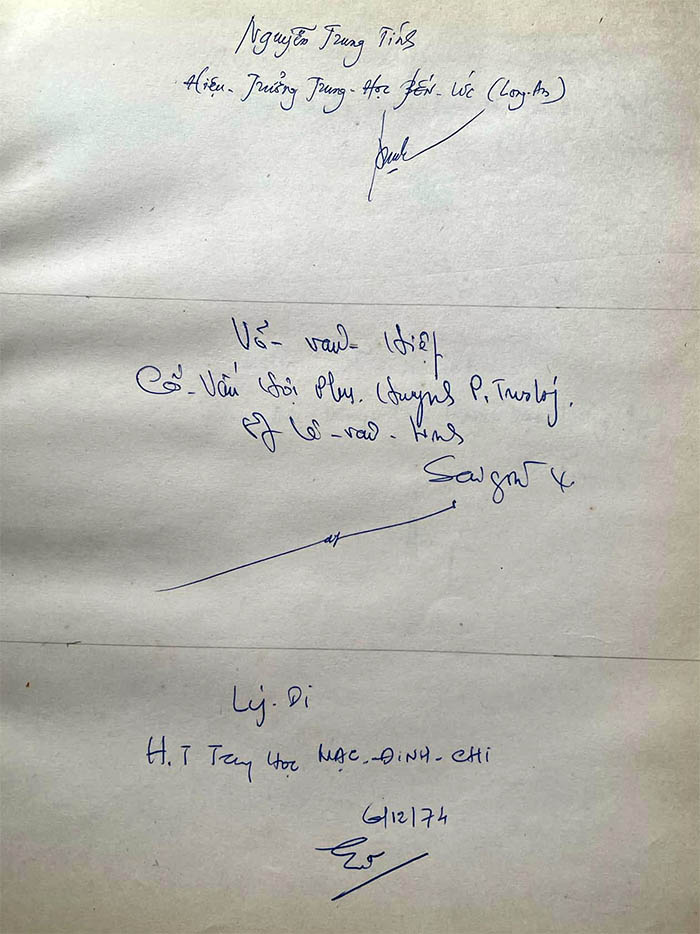 Nguyễn Trung Tính
Hiệu-Trưởng Trung-Học BẾN-LỨC (Long-An)
Võ-van-Hiệp
Cố-Vấn Hội Phụ. Huynh
Lê-van-
Saigon 4
Lý. Di
H.T Trung Học MẠC-ĐINH-CHI
6/12/74